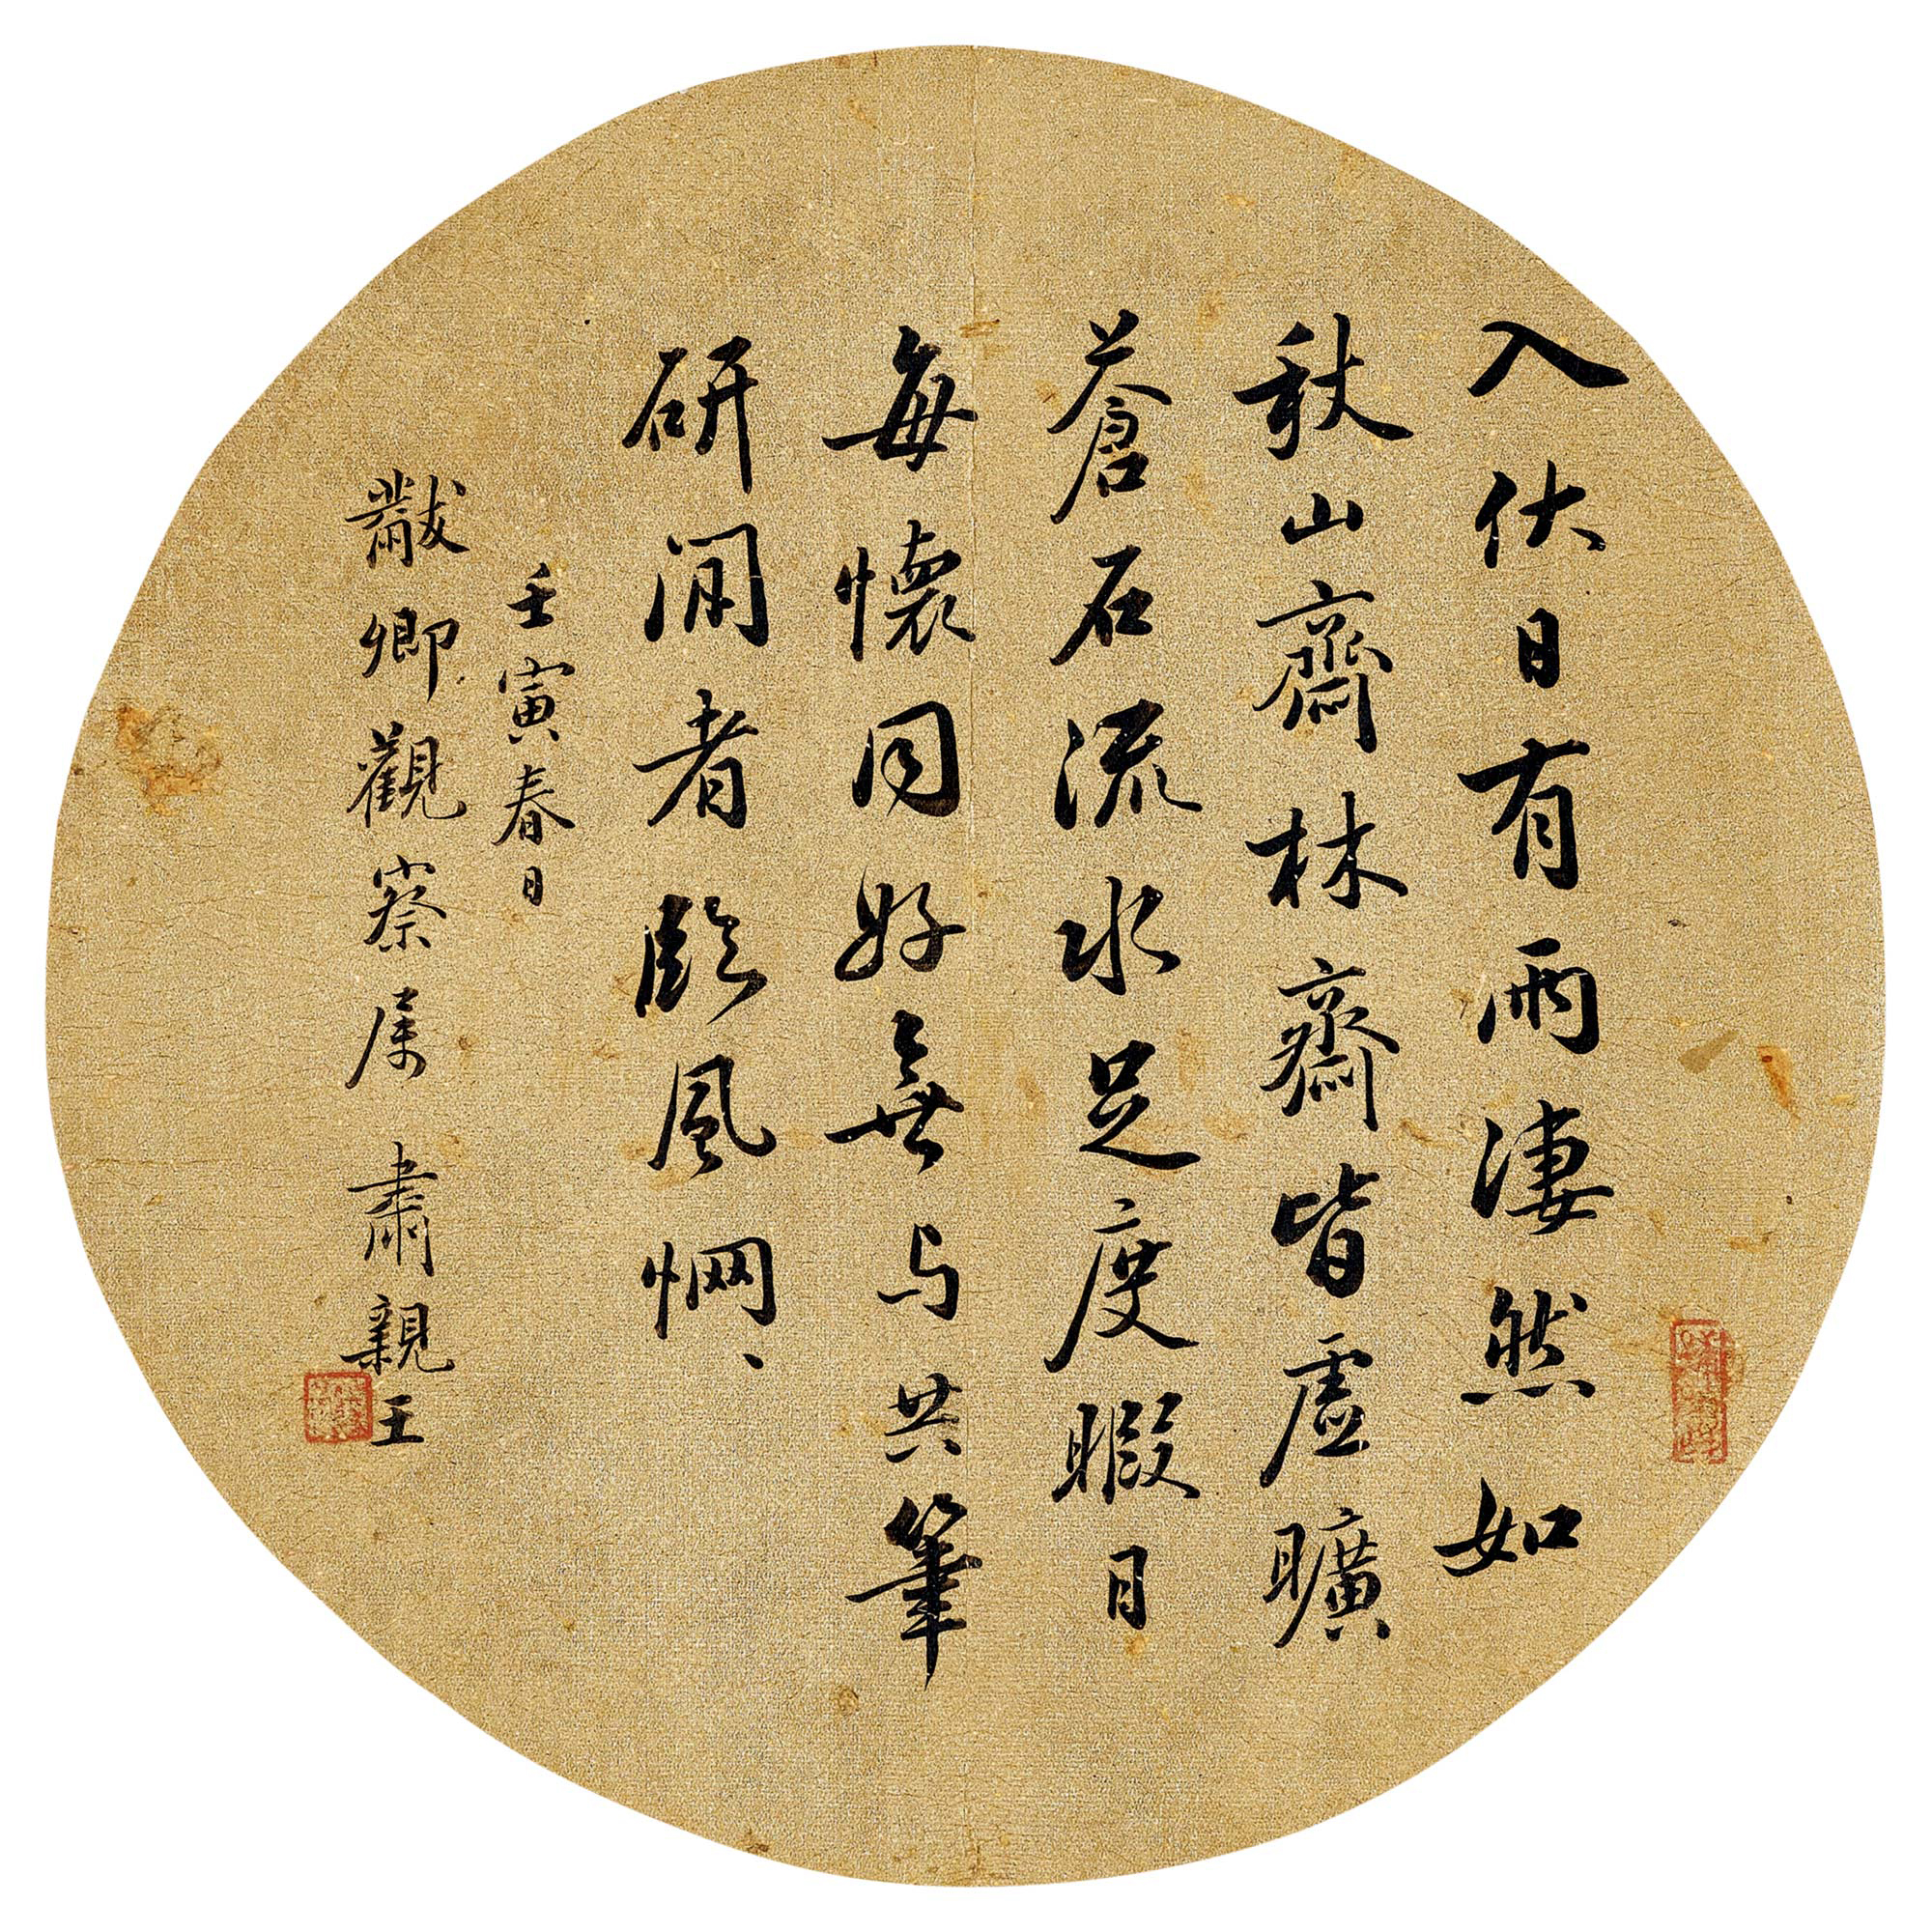 入伏日有雨淒然如
秋山齋林齋皆虛曠
蒼石流水足度暇日
每懷同好無与共筆
研間者臨風惘、
壬寅春日
黻卿觀察属 肅親王